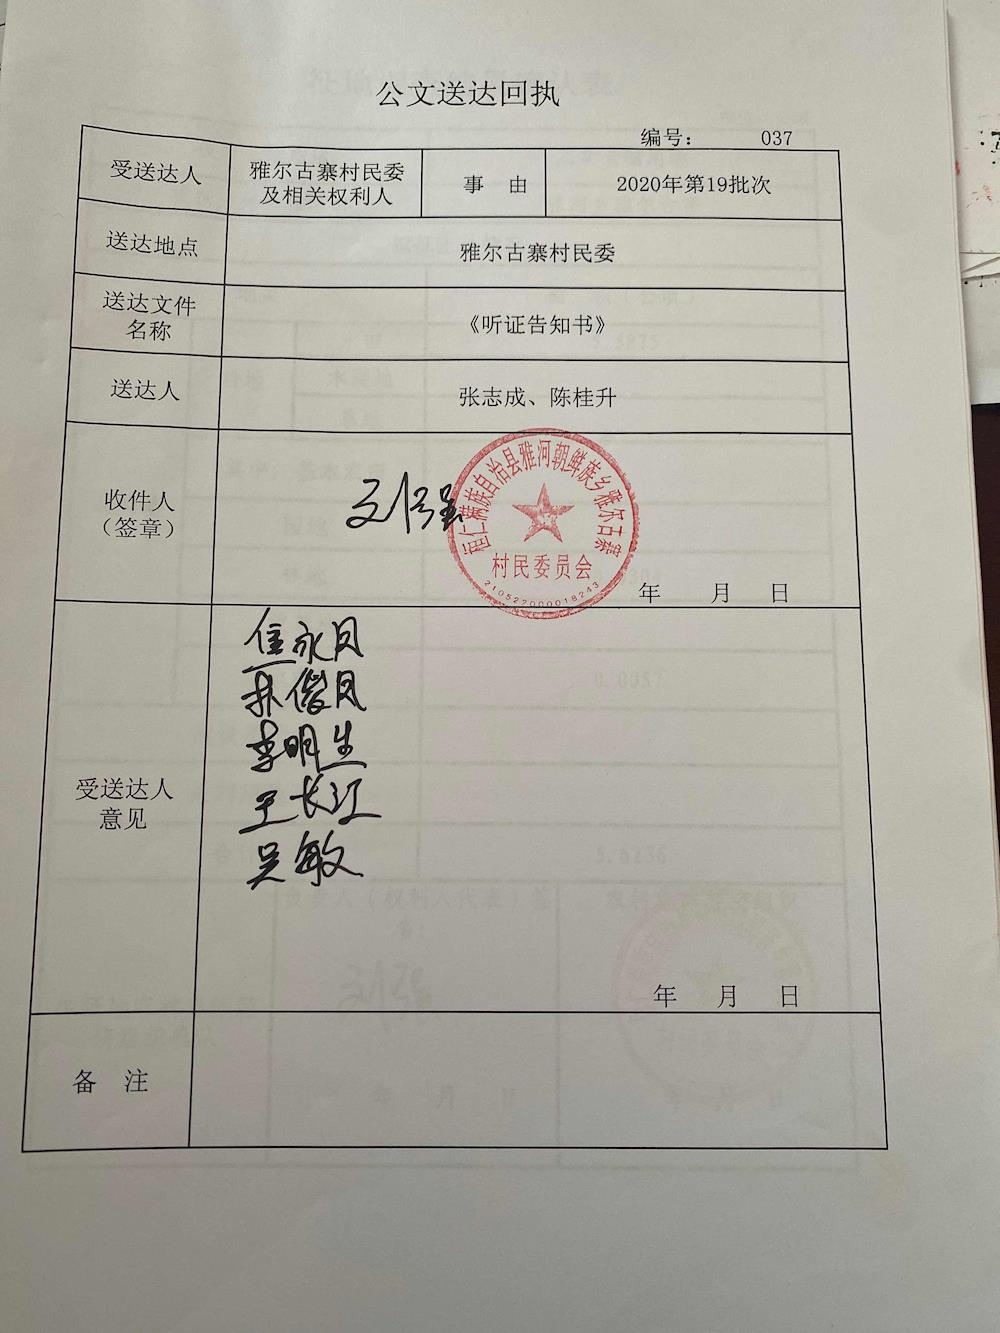 公文送达回执
编号： 037
受送达人
雅尔古寨村民委
及相关权利人
事 由
2020年第19批次
送达地点
雅尔古寨村民委
送达文件
名称
《听证告知书》
送达人
张志成、陈桂升
收件人
（签章）
桓仁满族自治县雅河朝鲜族乡雅尔古寨
村民委员会
210522000018243
年 月 日
受送达人
意见
李明生
王长江
吴敏
年 月 日
备 注